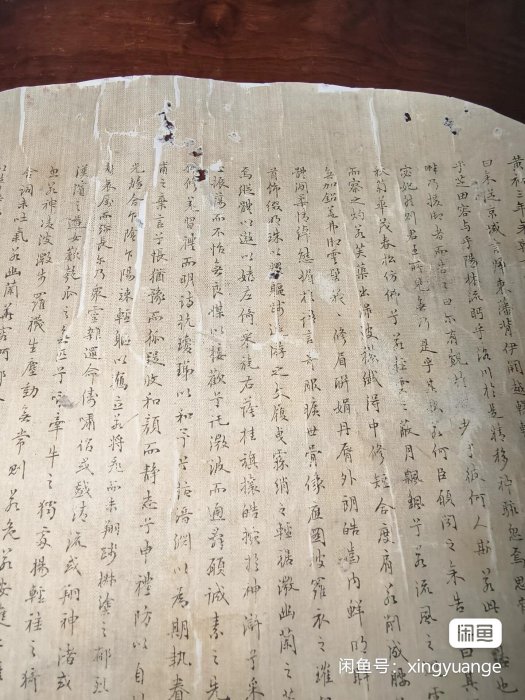 黄初三年
言歸東藩背伊闕越轘轅
乎芝田容与乎陽林流眄乎洛川於是精移神駭忽焉思
乃援御者而告之曰尔有覿於彼者乎彼何人斯若此也
宓妃則君王所見無乃是乎其狀若何臣願聞之余告之曰其
秋菊華茂春松仿佛兮若輕雲之蔽月飄飖兮若流風之
而察之灼若芙蕖出渌波穠纖得中修短合度肩若削成腰
無加鉛華弗御雲髻峩々修眉聯娟丹唇外朗皓齒内鮮明眸
閑柔情綽態媚於語言奇服曠世骨像應圖披羅衣之璀
首飾綴明珠以耀軀踐遠遊之文履曳霧綃之輕裾微幽蘭之芳
焉縱體以遨以嬉左倚采旄右蔭桂旗攘皓腕於神滸兮采
振蕩而不怡無良媒以接歡兮託微波而通辭願誠素之先
修羌習禮而明詩抗瓊珶以和予兮指潛淵以為期執眷
甫之棄言兮悵猶豫而狐疑收和顔而静志兮申禮防以自
光離合乍陰乍陽竦輕軀以鶴立若將飛而未翔踐椒塗之郁烈
哀厲而彌長尔乃衆霊雜遝命儔嘯侣或戲清流或翔神渚或
漢濱之遊女歎匏瓜之無匹兮詠牽牛之獨處揚輕袿之猗
若神凌波微步羅襪生塵動無常則若危若安進止難
含詞未吐氣若幽蘭華容婀
闲鱼
闲鱼号：xingyuange